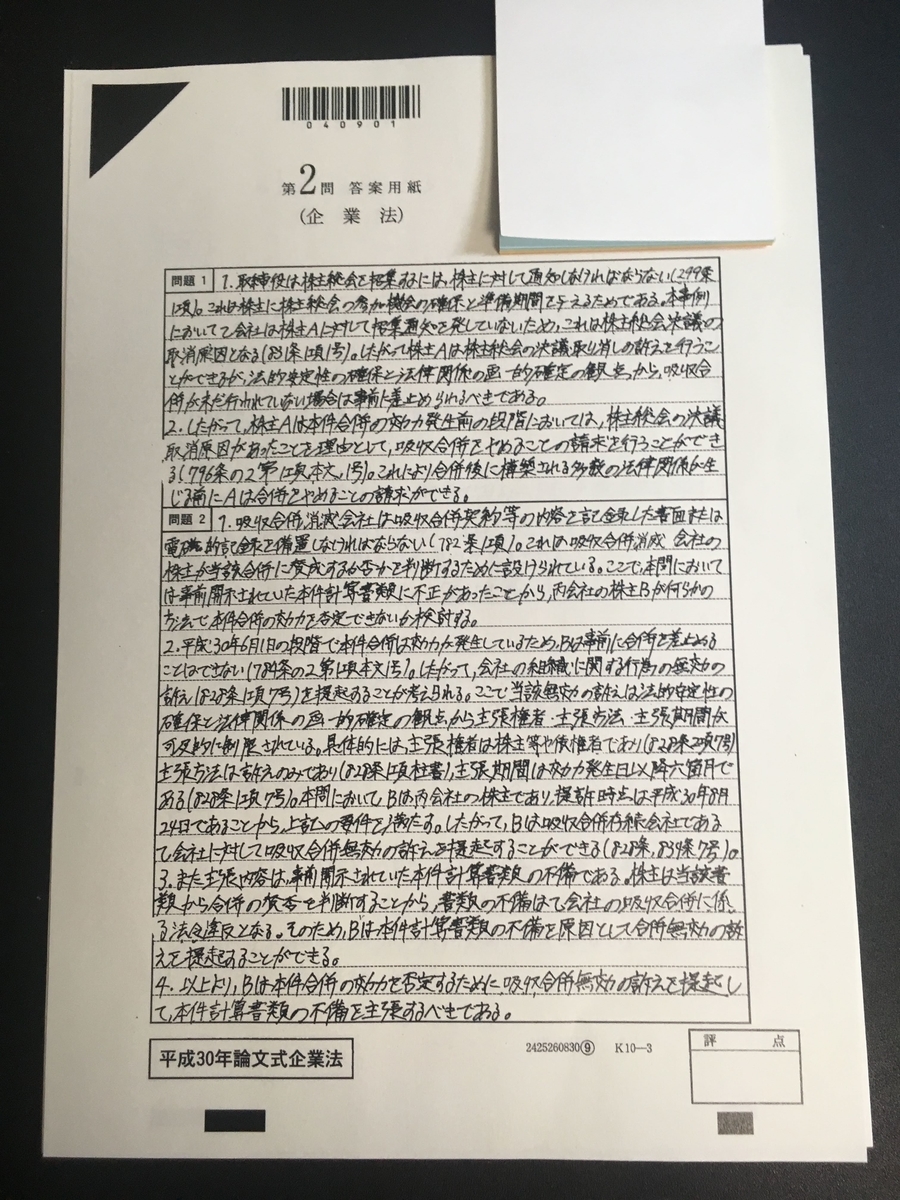 040901
第2問 答案用紙
(企業法)
問題1 1.取締役は株主総会を招集するには、株主に対して通知しなければならない(299条
1項)。これは株主に株主総会の参加機会の確保と準備期間を与えるためである。本事例
において乙会社は株主Aに対して招集通知を発していないため、これは株主総会決議の
取消原因となる(831条1項1号)。したがって株主Aは株主総会の決議取り消しの訴えを行うこ
とができるが、法的安定性の確保と法律関係の画一的確定の観点から、吸収合
併が未だ行われていない場合は事前に差止められるべきである。
2.したがって、株主Aは本件合併の効力発生前の段階においては、株主総会の決議
取消原因があったことを理由として、吸収合併をやめることの請求を行うことができ
る(796条の2第1項本文、1号)。これにより合併後に構築される多数の法律関係が生
じる前にAは合併をやめることの請求ができる。
問題2 1.吸収合併消滅会社は吸収合併契約等の内容を記録した書面または
電磁的記録を備置しなければならない(782条1項)。これは吸収合併消滅 会社の
株主が当該合併に賛成するか否かを判断するために設けられている。ここで、本問において
は事前開示されていた本件計算書類に不正があったことから、丙会社の株主Bが何らかの
方法で本件合併の効力を否定できないか検討する。
2.平成30年6月1日の段階で本件合併は効力が発生しているため、Bは事前に合併を差止める
ことはできない(784条の2第1項本文1号)。したがって、会社の組織に関する行為の無効の
訴え(828条1項7号)を提起することが考えられる。ここで当該無効の訴えは法的安定性の
確保と法律関係の画一的確定の観点から主張権者・主張方法・主張期間が
可及的に制限されている。具体的には、主張権者は株主等や債権者であり(828条2項7号)
主張方法は訴えのみであり(828条1項柱書)、主張期間は効力発生日以降六箇月で
ある(828条1項7号)。本問において、Bは丙会社の株主であり、提訴時点は平成30年8月
24日であることから、上記の要件を満たす。したがって、Bは吸収合併存続会社である
乙会社に対して吸収合併無効の訴えを提起することができる(828条、834条7号)。
3.また主張内容は、事前開示されていた本件計算書類の不備である。株主は当該書
類から合併の賛否を判断することから、書類の不備は乙会社の吸収合併に係
る法令違反となる。そのため、Bは本件計算書類の不備を原因として合併無効の訴
えを提起することができる。
4.以上より、Bは本件合併の効力を否定するために、吸収合併無効の訴えを提起し
て、本件計算書類の不備を主張するべきである。
平成30年論文式企業法
2425260830⑨ K10―3
評 点